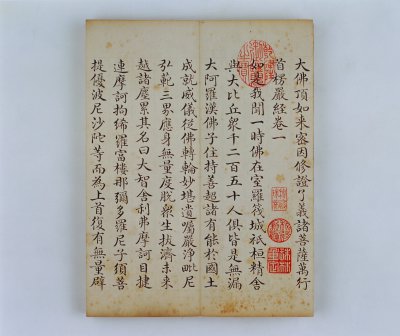 大佛頂如來密因修證了義諸菩薩萬行
首楞嚴經卷一
如是我聞一時佛在室羅筏城祇桓精舍
與大比丘眾千二百五十人俱皆是無漏
大阿羅漢佛子住持善超諸有能於國土
成就威儀從佛轉輪妙堪遺囑嚴淨毗尼
弘範三界應身無量度脫眾生拔濟未來
越諸塵累其名曰大智舍利弗摩訶目揵
連摩訶拘絺羅富樓那彌多羅尼子須菩
提優波尼沙陀等而為上首復有無量辟